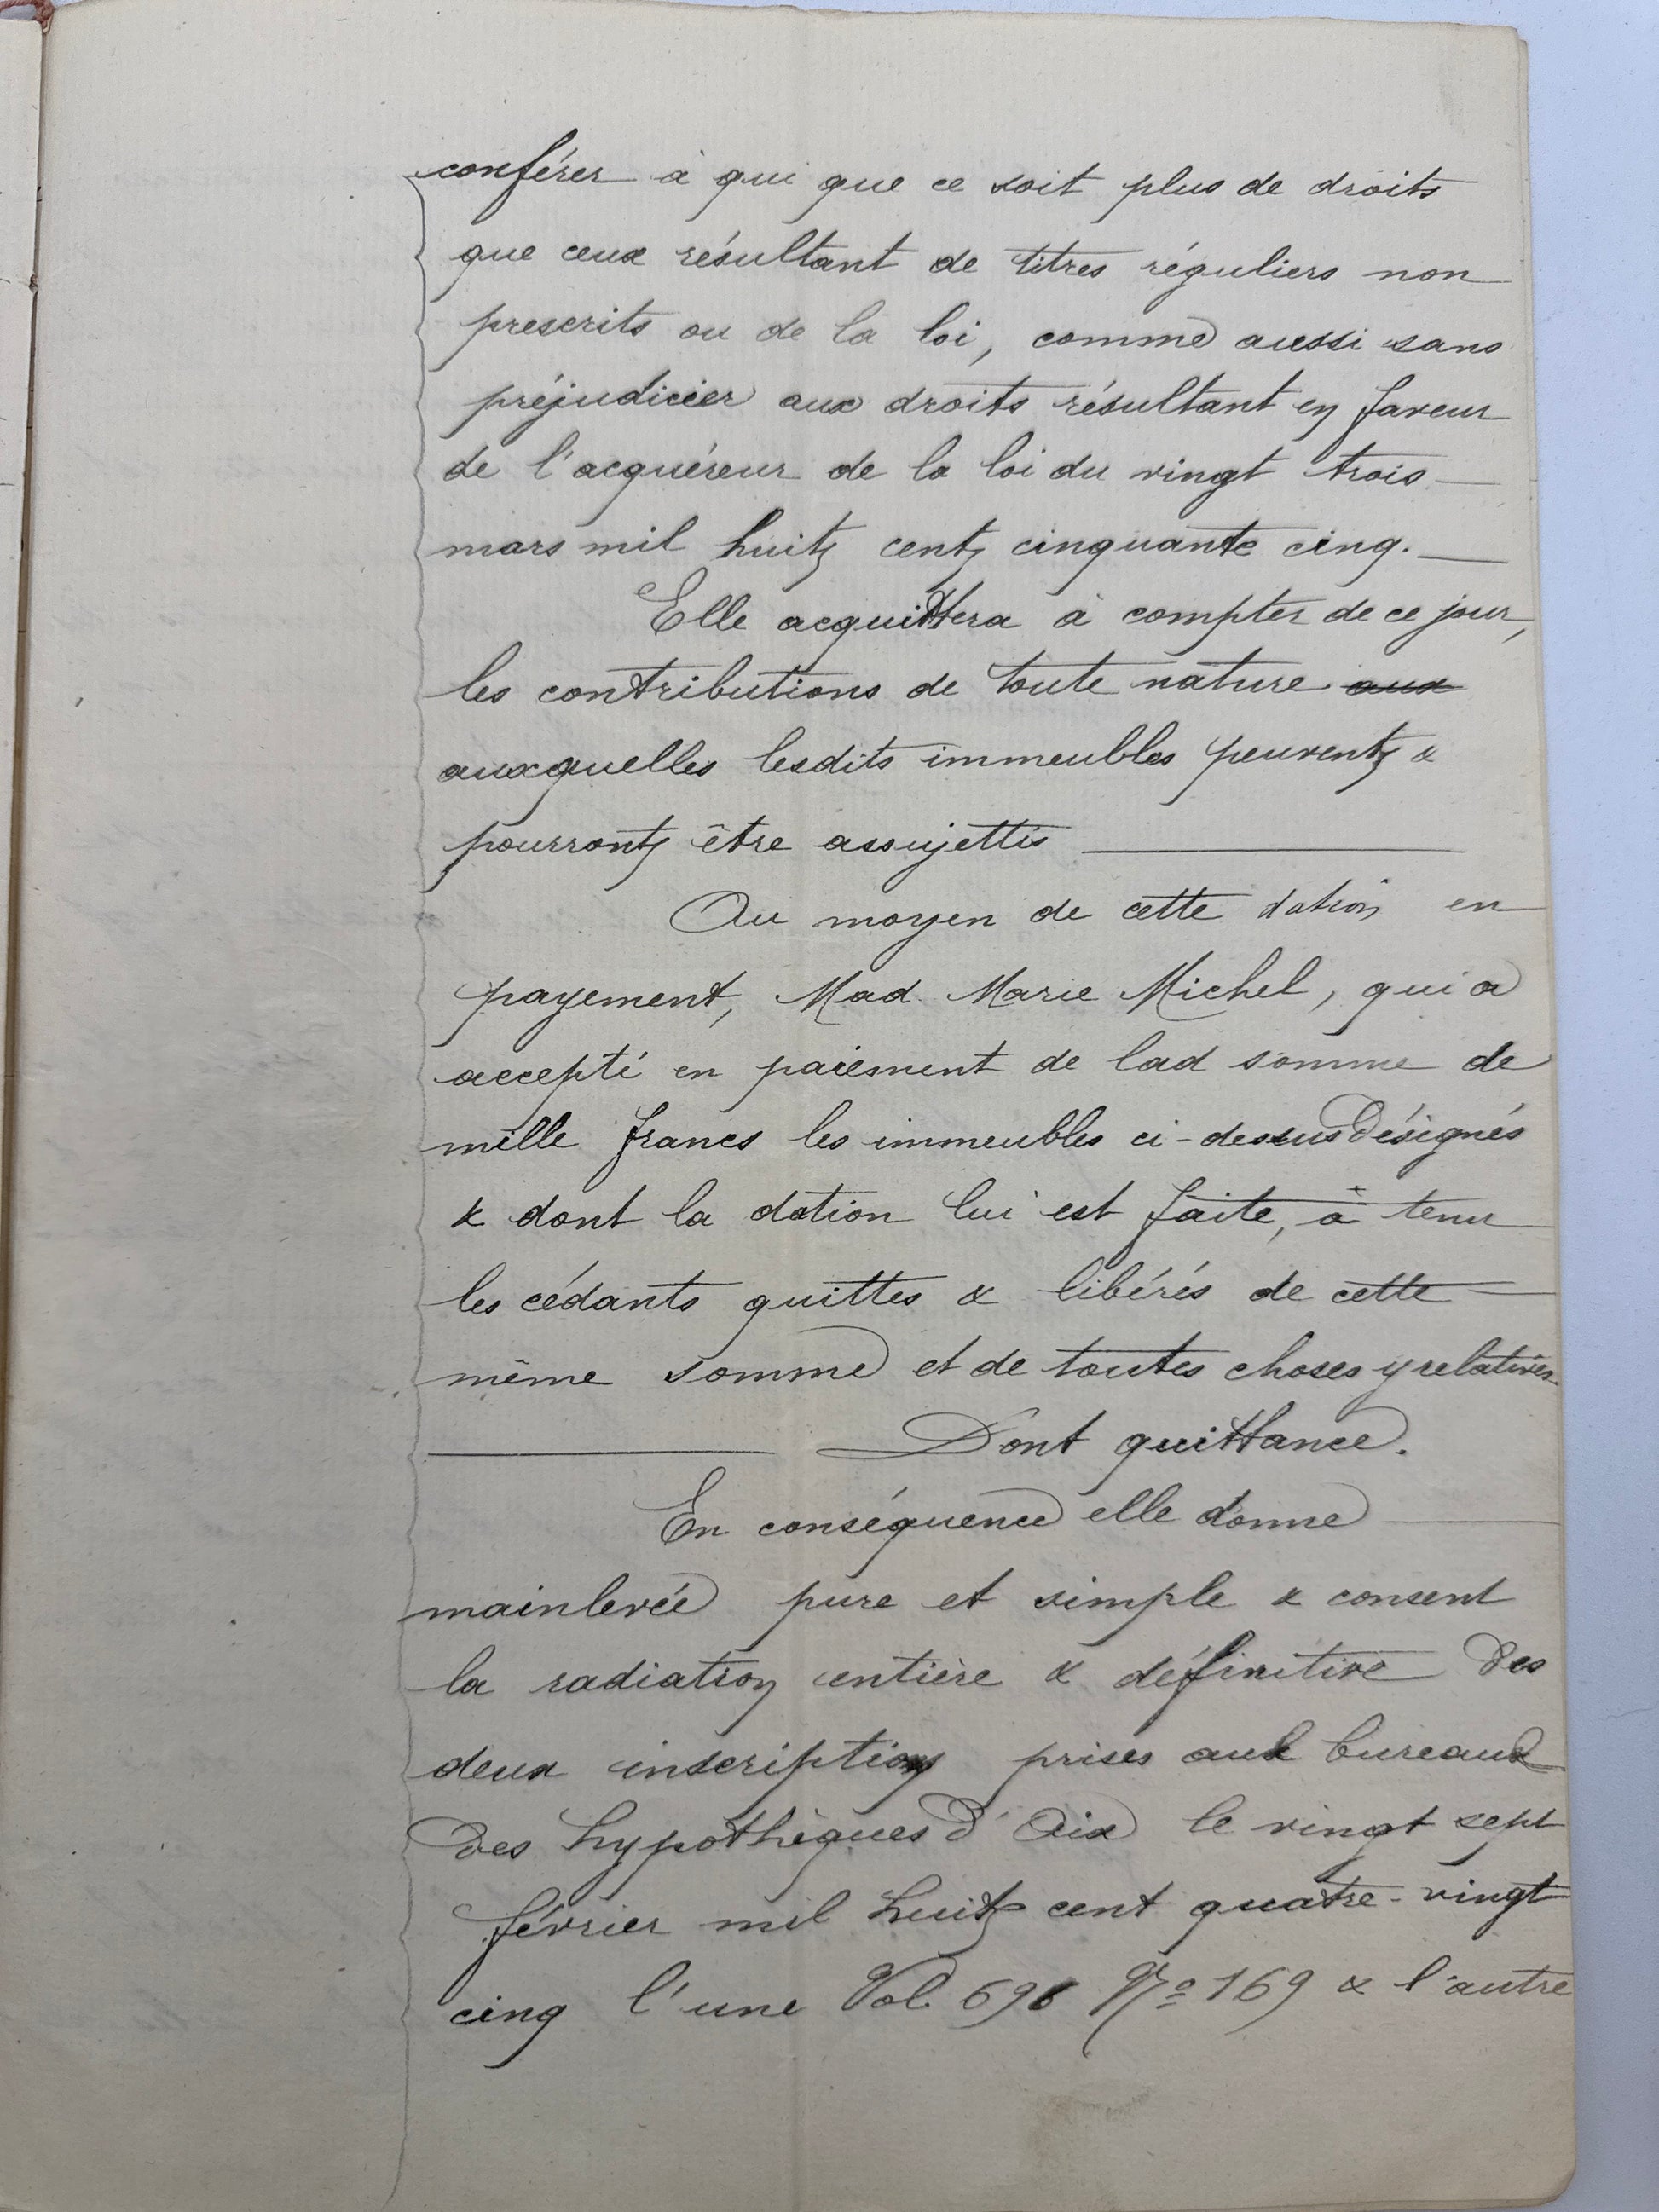 conférer à qui que ce soit plus de droits
que ceux résultant de titres réguliers non
prescrits ou de la loi, comme aussi sans
préjudicier aux droits résultant en faveur
de l'acquéreur de la loi du vingt trois
mars mil huit cent cinquante cinq.
Elle acquittera à compter de ce jour,
les contributions de toute nature aux
auxquelles lesdits immeubles peuvent &
pourront être assujettis
Au moyen de cette dation en
payement, Mad. Marie Michel, qui a
accepté en paiement de lad somme de
mille francs les immeubles ci-dessus désignés
& dont la dation lui est faite, à tenu
les cédants quittes & libérés de cette
même somme et de toutes choses y relatives
Dont quittance.
En conséquence elle donne
mainlevée pure et simple & consent
la radiation entière & définitive des
deux inscriptions prises aux bureaux
des hypothèques d'Aix le vingt sept
février mil huit cent quatre-vingt
cinq l'une Vol. 696 No 169 & l'autre